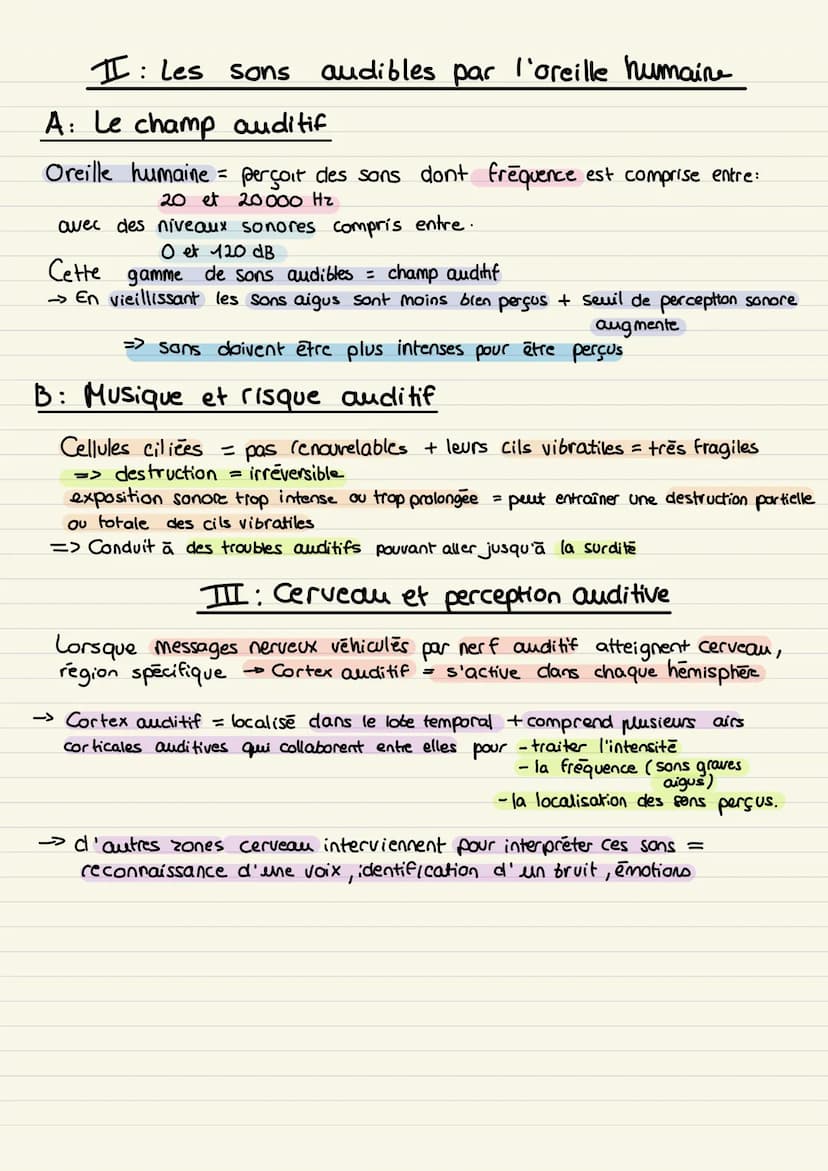 II : Les sons audibles par l'oreille humaine
A : Le champ auditif
Oreille humaine = perçoit des sons dont fréquence est comprise entre :
20 et 20000 Hz
avec des niveaux sonores compris entre.
0 et 120 dB
Cette gamme de sons audibles = champ auditif
→ En vieillissant les sons aigus sont moins bien perçus + seuil de perception sonore
augmente
=> sons doivent être plus intenses pour être perçus
B : Musique et risque auditif
Cellules ciliées = pas renouvelables + leurs cils vibratiles = très fragiles
=> destruction = irréversible
exposition sonore trop intense ou trop prolongée = peut entraîner une destruction partielle
ou totale des cils vibratiles
=> Conduit à des troubles auditifs pouvant aller jusqu'à la surdité
III : Cerveau et perception auditive
Lorsque messages nerveux véhiculés par nerf auditif atteignent cerveau,
région spécifique → Cortex auditif = s'active dans chaque hémisphère
→ Cortex auditif = localisé dans le lobe temporal + comprend plusieurs airs
corticales auditives qui collaborent entre elles pour - traiter l'intensité
- la fréquence (sons graves
aigus)
- la localisation des sons perçus.
→ d'autres zones cerveau interviennent pour interpréter ces sons =
reconnaissance d'une voix, identification d'un bruit, émotions